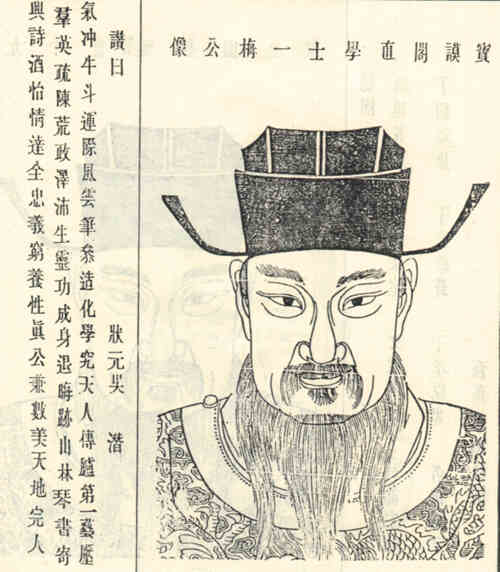 寶謨閣直學士一梅公像
讚曰 狀元吳潛
氣冲牛斗運際風雲筆參造化學究天人傳臚第一藝壓
羣英疏陳荒政澤沛生靈功成身退晦跡山林琴書寄
興詩酒怡情達全忠義窮養性眞公兼數美天地完人